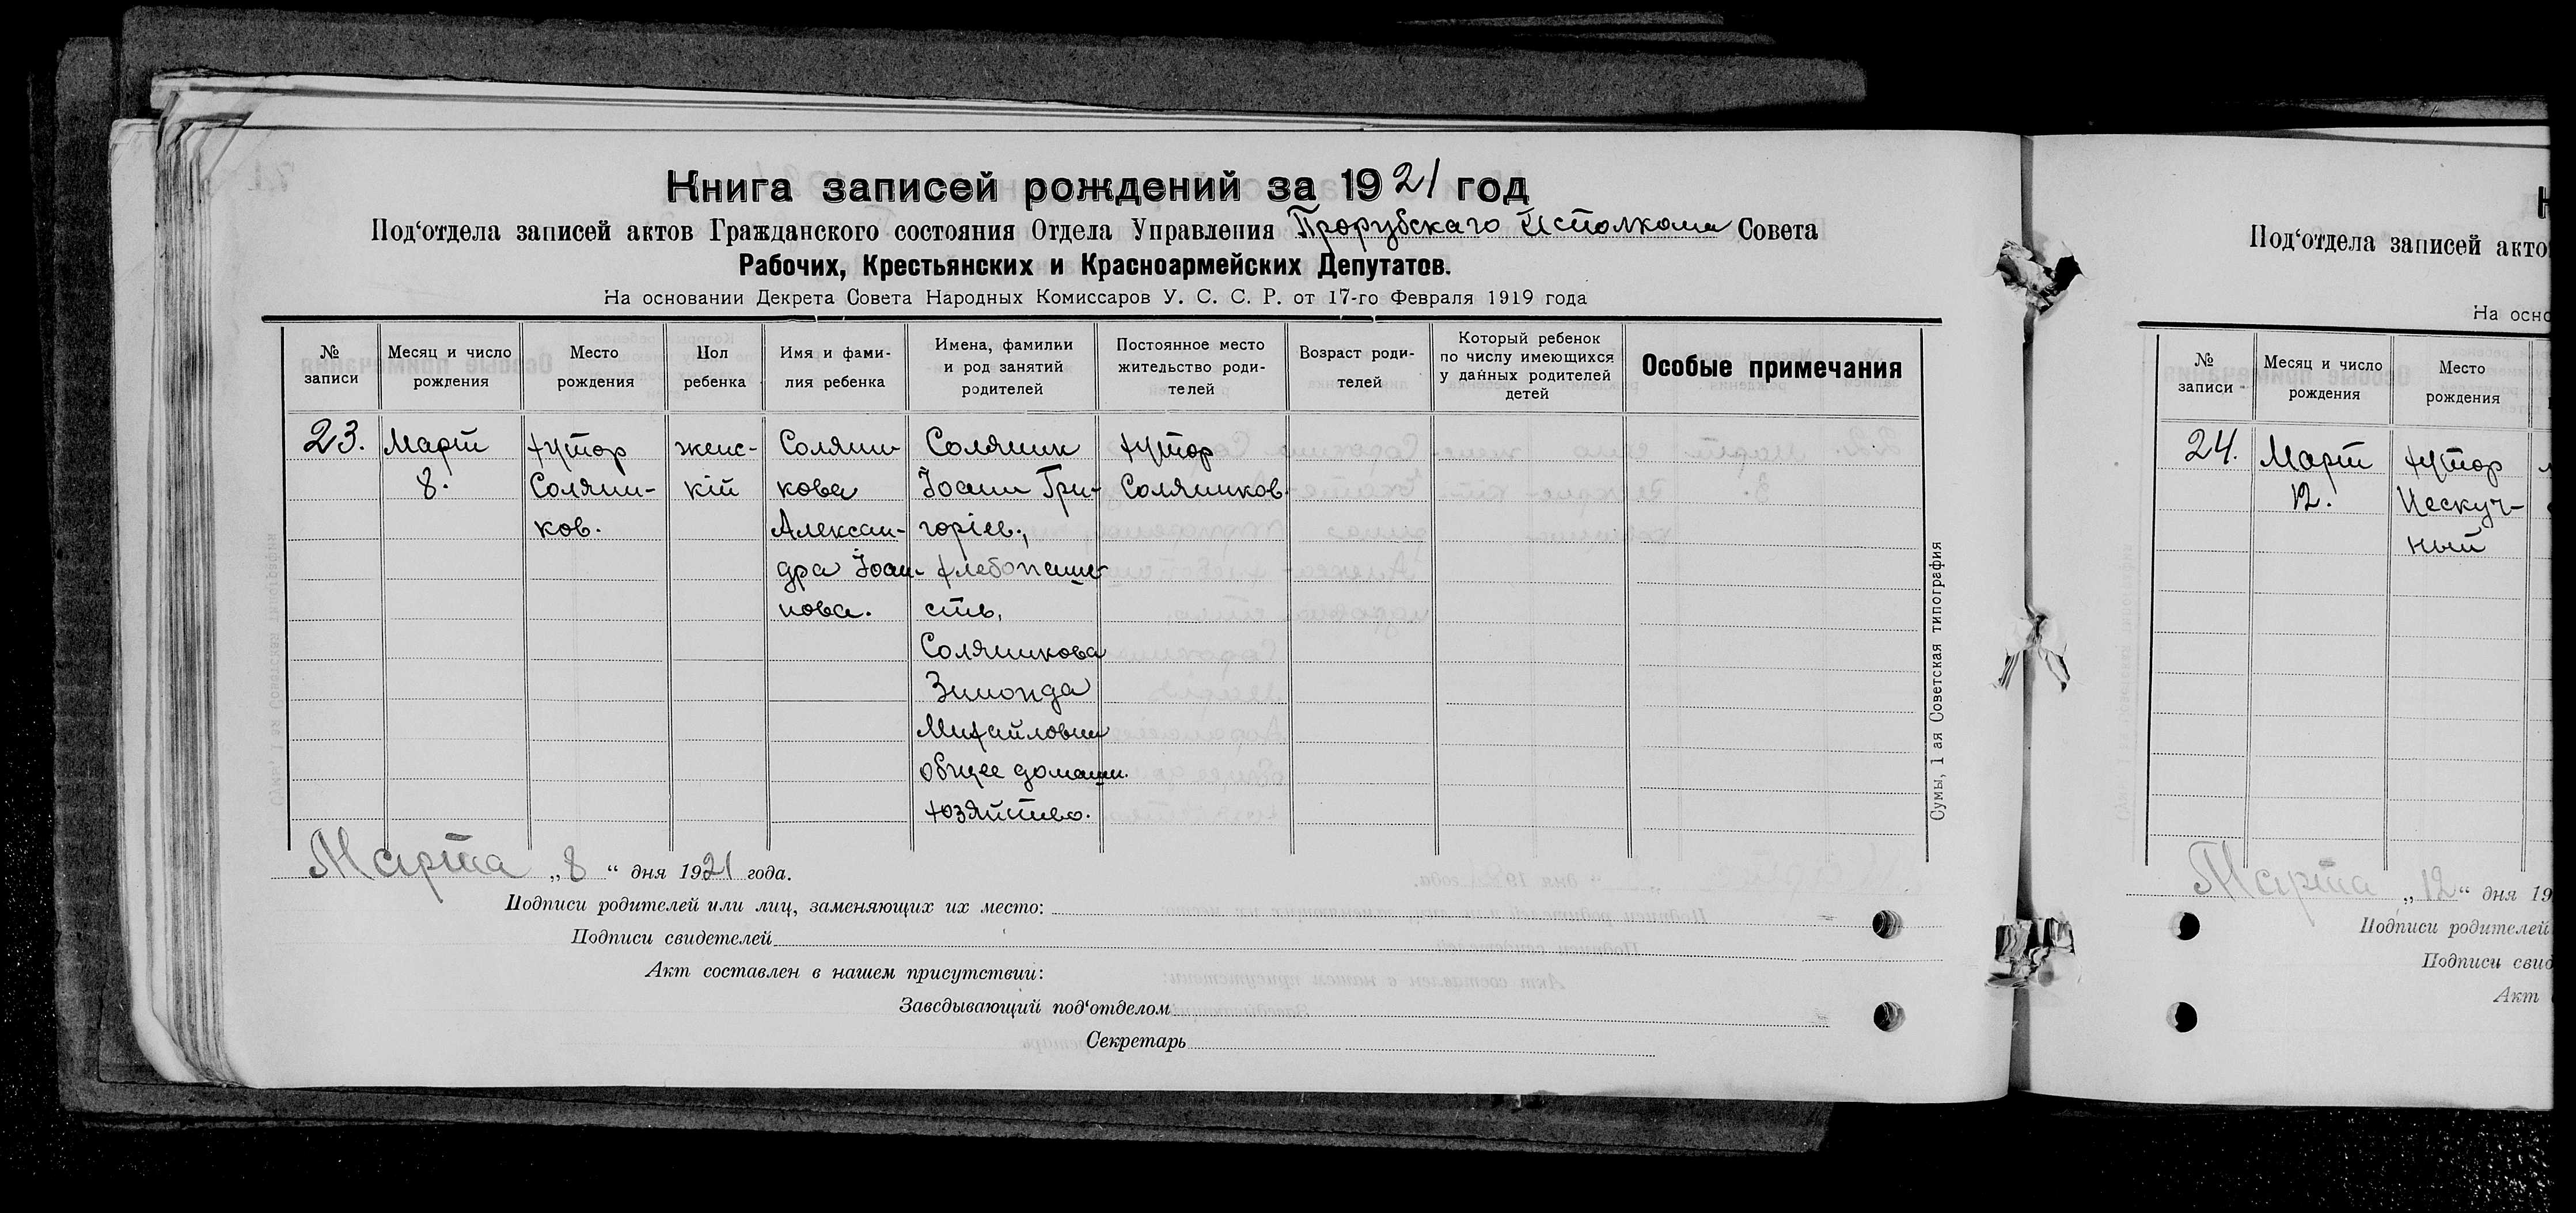 Книга записей рождений за 1921 год
Под‘отдела записей актов Гражданского состояния Отдела Управления Прорубскаго Исполкома Совета
Рабочих, Крестьянских и Красноармейских Депутатов.
На основании Декрета Совета Народных Комиссаров У. С. С. Р. от 17-го Февраля 1919 года
№ записи
Месяц и число рождения
Место рождения
Пол ребенка
Имя и фами-
лия ребенка
Имена, фамилии
и род занятий
родителей
Постоянное место
жительство роди-
телей
Возраст роди-
телей
Который ребенок
по числу имеющихся
у данных родителей
детей
Особые примечания
23.
Март
8.
хутор
Солян-
ков.
женс-
кій
Соляни-
кова
Алексан-
дра Іоан-
нова.
Соляник
Іоанн Гри-
горіев.,
хлебопаше-
сть,
Соляникова
Михайловна
общее домашн.
хозяйство.
хутор
Соляников.
Сумы, 1 ая Советская типография
Марта „8“ дня 1921 года.
Подписи родителей или лиц, заменяющих их место:
Подписи свидетелей
Акт составлен в нашем присутствии:
Заведывающий под‘отделом
Секретарь
Под‘отдела записей акто
На осно
№ записи
Месяц и число
рождения
Место
рождения
24.
Март
12.
хутор
Нескуч-
ный
Марта „12“ дня 19
Подписи родителей
Подписи свид
Акт